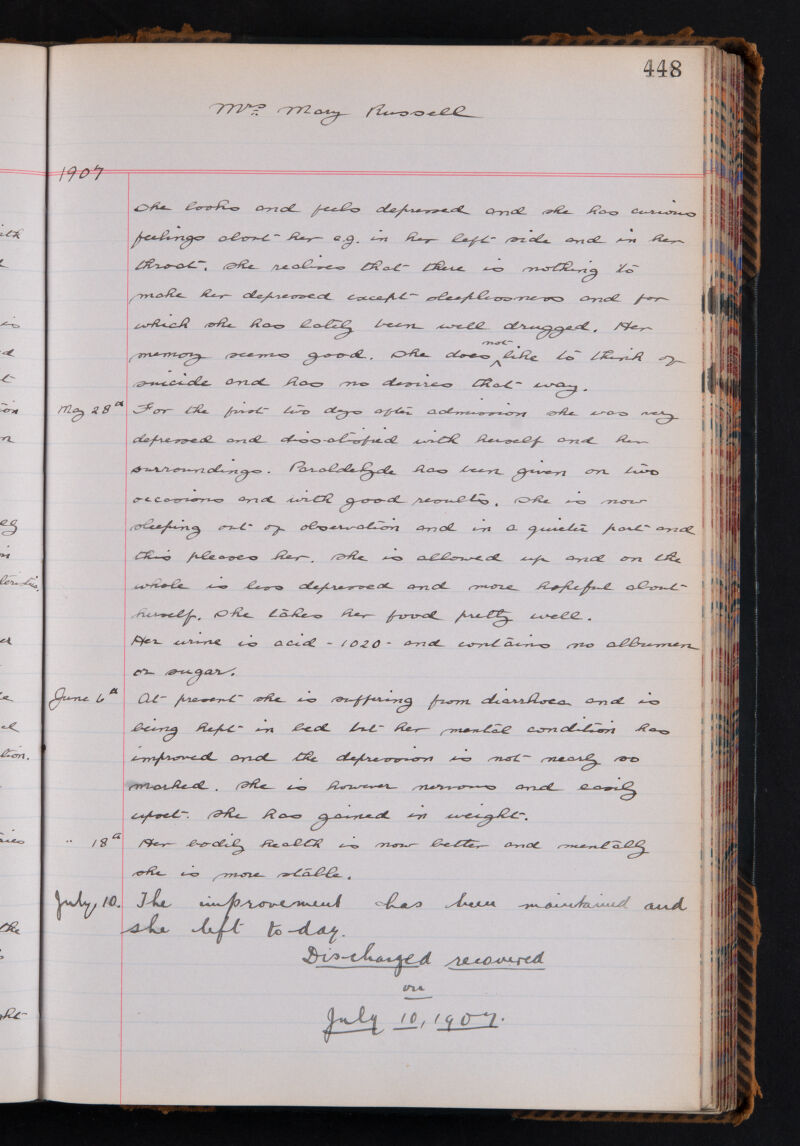 448
Mrs Mary Russell
1907
She looks and feels depressed and she has curious
feelings about her e.g. in her left side and in her
throat. She realises that there is nothing to
make her depressed except sleeplessness and for
which she has lately been well drugged. Her
memory seems good. She does not like to think of
suicide and has no desires that way.
May 28th For the first two days after admission she was very
depressed and dissatisfied with herself and her
surroundings. Paraldehyde has been given on two
occasions and with good results. She is now
sleeping out of observation and in a quieter part and
this pleases her. She is allowed up and on the
whole is less depressed and more hopeful about
herself. She takes her food pretty well.
Her urine is acid - 1020 - and contains no albumen
or sugar.
June 6th At present she is suffering from diarrhoea and is
being kept in bed but her mental condition has
improved and the depression is not nearly so
marked. She is however nervous and easily
upset. She has gained in weight.
" 18th Her bodily health is now better and mentally
she is more stable.
July, 10. The improvement has been maintained and
she left to-day.
Discharged recovered
on
July 10, 1907.